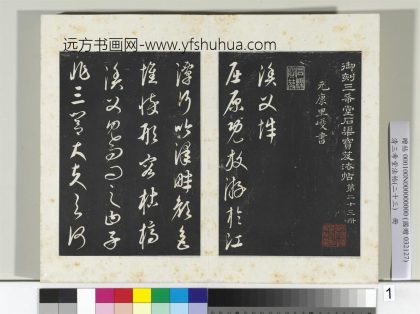 远方书画网-www.yfshuhua.com
御刻三希堂石渠寶笈法帖第二十三冊
元康里巎書
漁父辭
屈原既放游於江
潭行吟澤畔顏色
憔悴形容枯槁
漁父見而問之曰子
非三閭大夫與何
清三希堂法帖(二十三) 冊
1